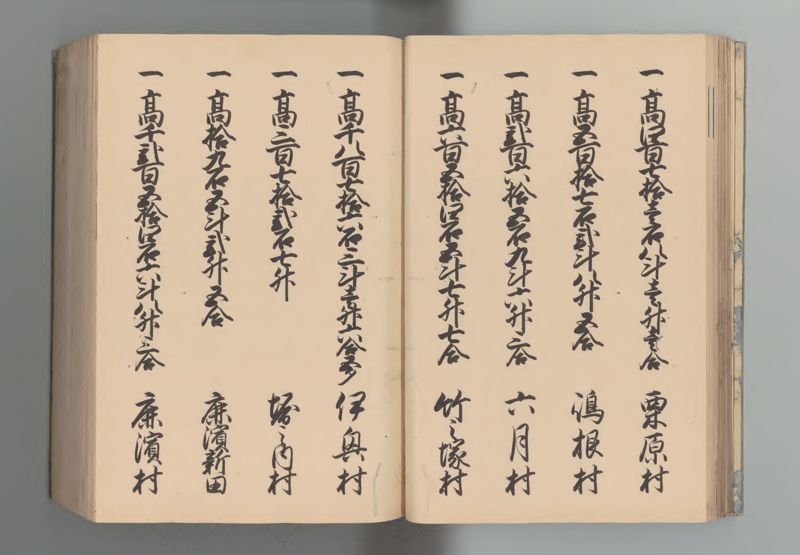 一高四百七拾壱石八斗壱升壱合 栗原村
一高五百拾七石弐斗八升五合 嶋根村
一高弐百六拾五石九斗六升三合 六月村
一高六百五拾四石五斗七升七合 竹之塚村
一高千八百七拾六石三斗壱升六合 伊興村
一高三百七拾弐石七升 堀之内村
一高拾九石五斗弐升五合 鹿濱新田
一高千弐百五拾四石六斗八升三合 鹿濱村